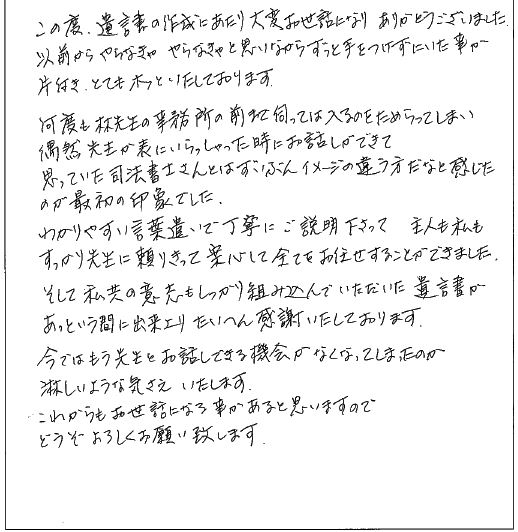 この度、遺言書の作成にあたり大変お世話になり ありがとうございました.
以前から やらなきゃ やらなきゃと思いながらずっと手をつけずにいた事が
片付き、とてもホッといたしております.
何度も林先生の事務所の前まで伺っては入るのをためらってしまい
偶然 先生が表にいらっしゃった時にお話しができて
思っていた司法書士さんとはずいぶん イメージの違う方だなと感じた
のが最初の印象でした.
わかりやすい言葉遣いで丁寧にご説明下さって 主人も私も
すっかり先生に頼りきって安心して全てをお任せすることができました.
そして私共の意志もしっかり組み込んでいただいた遺言書が
あっという間に出来上り たいへん感謝いたしております.
今ではもう先生とお話しできる機会がなくなってしまったのが
淋しいような気さえ いたします.
これからもお世話になる事があると思いますので
どうぞよろしくお願い致します.